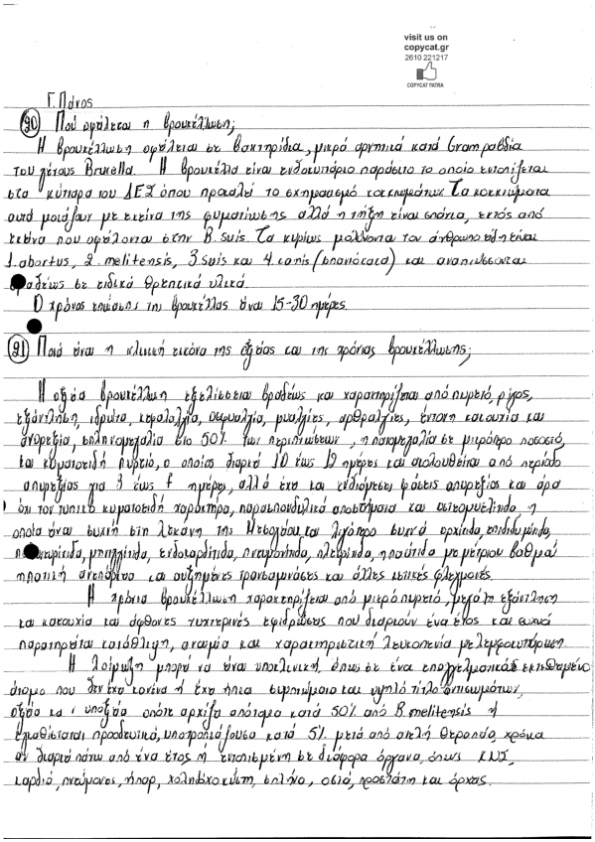 visit us on
copycat.gr
2610 221217
COPYCAT PATRA
Γ. Πάνος
20) Πού οφείλεται η βρουκέλλωση;
Η βρουκέλλωση οφείλεται σε βακτηρίδια, μικρά αρνητικά κατά Gram ραβδία
του γένους Brucella. Η βρουκέλλα είναι ενδοκυττάριο παράσιτο το οποίο εντοπίζεται
στα κύτταρα του ΔΕΣ όπου προκαλεί το σχηματισμό κοκκιωμάτων. Τα κοκκιώματα
αυτά μοιάζουν με εκείνα της φυματίωσης αλλά η τήξη είναι σπάνια, εκτός από
εκείνα που οφείλονται στην B. suis. Τα κυρίως μολύνοντα τον άνθρωπο είδη είναι
1. abortus, 2. melitensis, 3 suis και 4 canis (σπανιότατα) και αναπτύσσονται
βραδέως σε ειδικά θρεπτικά υλικά.
Ο χρόνος επώασης της βρουκέλλας είναι 15-30 ημέρες.
21) Ποιά είναι η κλινική εικόνα της οξείας και της χρόνιας βρουκέλλωσης;
Η οξεία βρουκέλλωση εξελίσσεται βραδέως και χαρακτηρίζεται από πυρετό, ρίγος,
εξάντληση, ιδρώτα, κεφαλαλγία, οσφυαλγία, μυαλγίες, αρθραλγίες, έντονη κακουχία και
ανορεξία, σπληνομεγαλία στο 50% των περιπτώσεων, η ηπατομεγαλία σε μικρότερο ποσοστό,
και κυματοειδή πυρετό, ο οποίος διαρκεί 10 έως 12 ημέρες και ακολουθείται από περίοδο
απυρεξίας για 3 έως 7 ημέρες, αλλά έχει και ενδιάμεσες φάσεις απυρεξίας και άρα
όχι τον τυπικό κυματοειδή χαρακτήρα, παρασπονδυλικά αποστήματα και οστεομυελίτιδα, η
οποία είναι συχνή στη λεκάνη της Μεσογείου και λιγότερο συχνά ορχίτιδα, επιδιδυμίτιδα,
μηνιγγίτιδα, ενδοκαρδίτιδα, πνευμονίτιδα, πλευρίτιδα, ηπατίτιδα με μέτριου βαθμού
ηπατική ανεπάρκεια και αυξημένες τρανσαμινάσες και άλλες εστικές φλεγμονές.
Η χρόνια βρουκέλλωση χαρακτηρίζεται από μικρό πυρετό, μεγάλη εξάντληση
και κακουχία και άφθονες νυχτερινές εφιδρώσεις που διαρκούν ένα έτος και συχνά
παρατηρείται κατάθλιψη, αναιμία και χαρακτηριστική λευκοπενία με λεμφοκυττάρωση.
Η λοίμωξη μπορεί να είναι υποκλινική, όπως σε ένα επαγγελματικά εκτεθειμένο
άτομο που δεν έχει κανένα ή έχει ήπια συμπτώματα και υψηλό τίτλο αντισωμάτων,
οξεία και υποξεία οπότε αρχίζει απότομα κατά 50% από B. melitensis ή
εγκαθίσταται προοδευτικά, υποτροπιάζουσα κατά 5% μετά από ατελή θεραπεία, χρόνια
αν διαρκεί πάνω από ένα έτος ή εντοπισμένη σε διάφορα όργανα, όπως ΚΝΣ,
καρδιά, πνεύμονες, ήπαρ, χοληδόχο κύστη, σπλήνα, οστά, προστάτη και όρχεις.